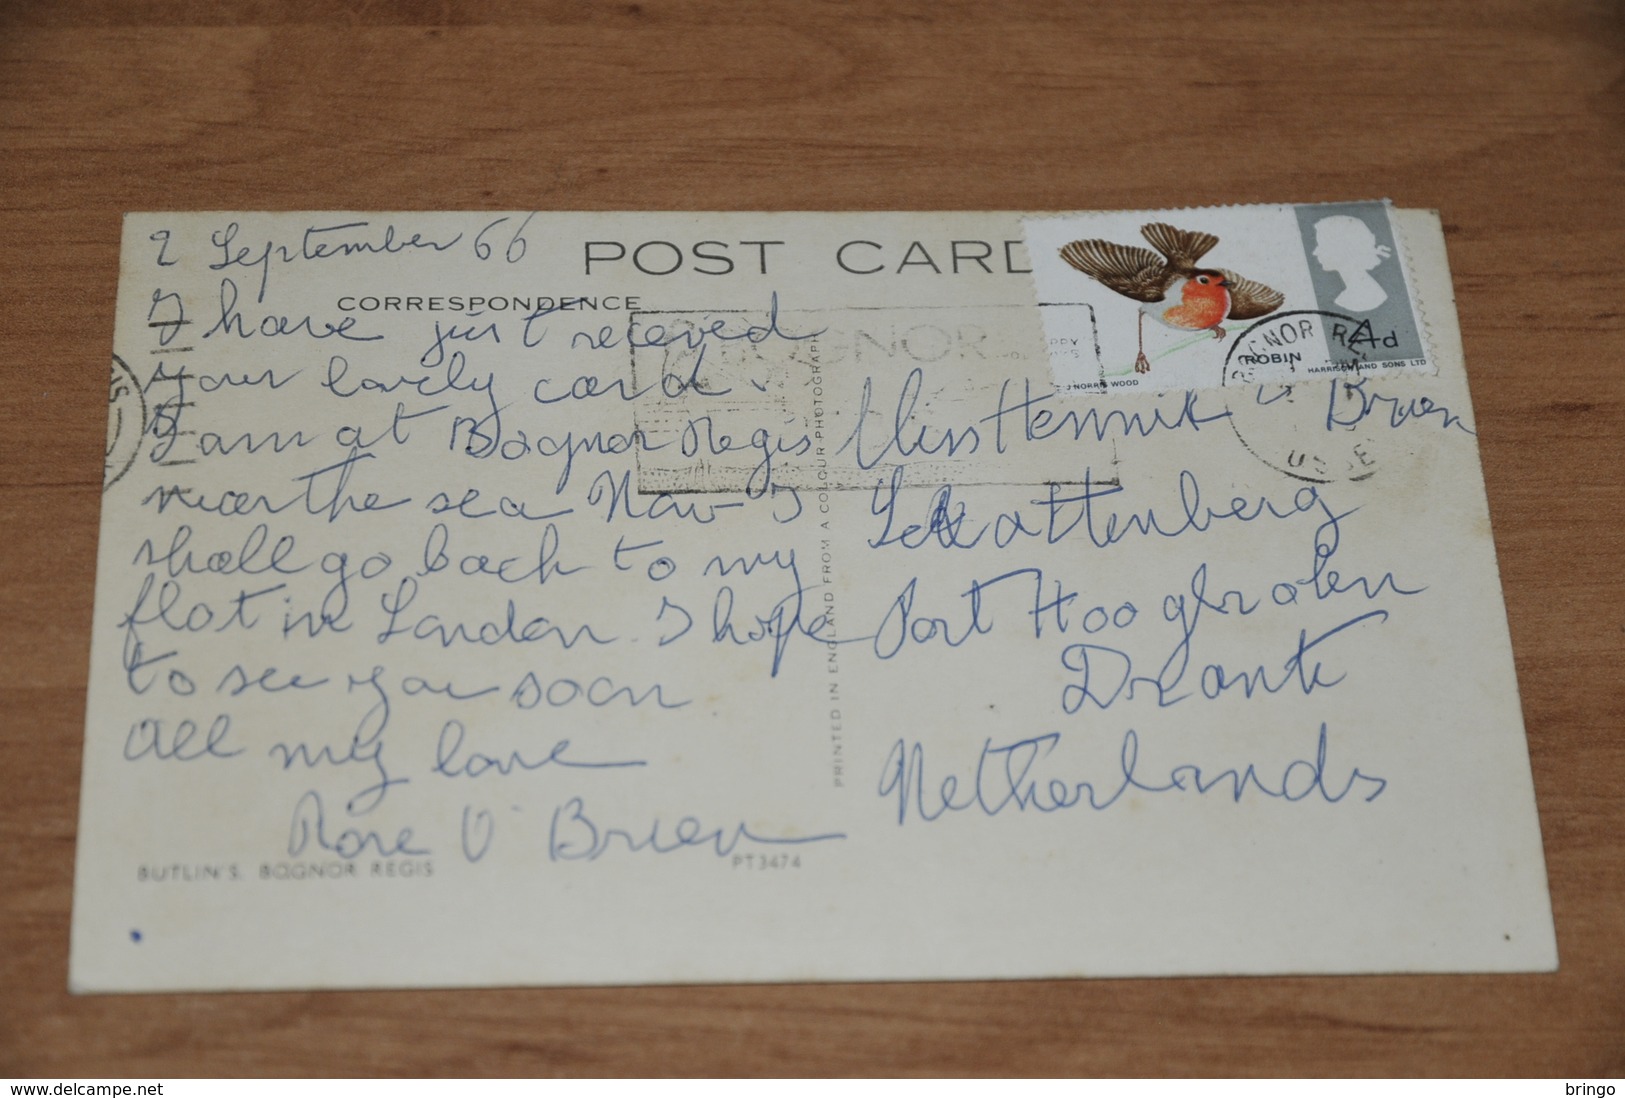 2 September 66
POST CARD
CORRESPONDENCE
I have just receved
your lovely card.
I am at Bognor Regis
near the sea Now I
shall go back to my
flat in London. I hope
to see you soon
All my love
Rose O'Brien
BUTLIN'S, BOGNOR REGIS
PT3474
PRINTED IN ENGLAND FROM A COLOUR PHOTOGRAPH
BOGNOR
4d
ROBIN
HARRISON AND SONS LTD
J NORRIS WOOD
BOGNOR REGIS
SUSSEX
Miss Hennie
Schattenberg
Post Hooghalen
Drente
Netherlands
bringo